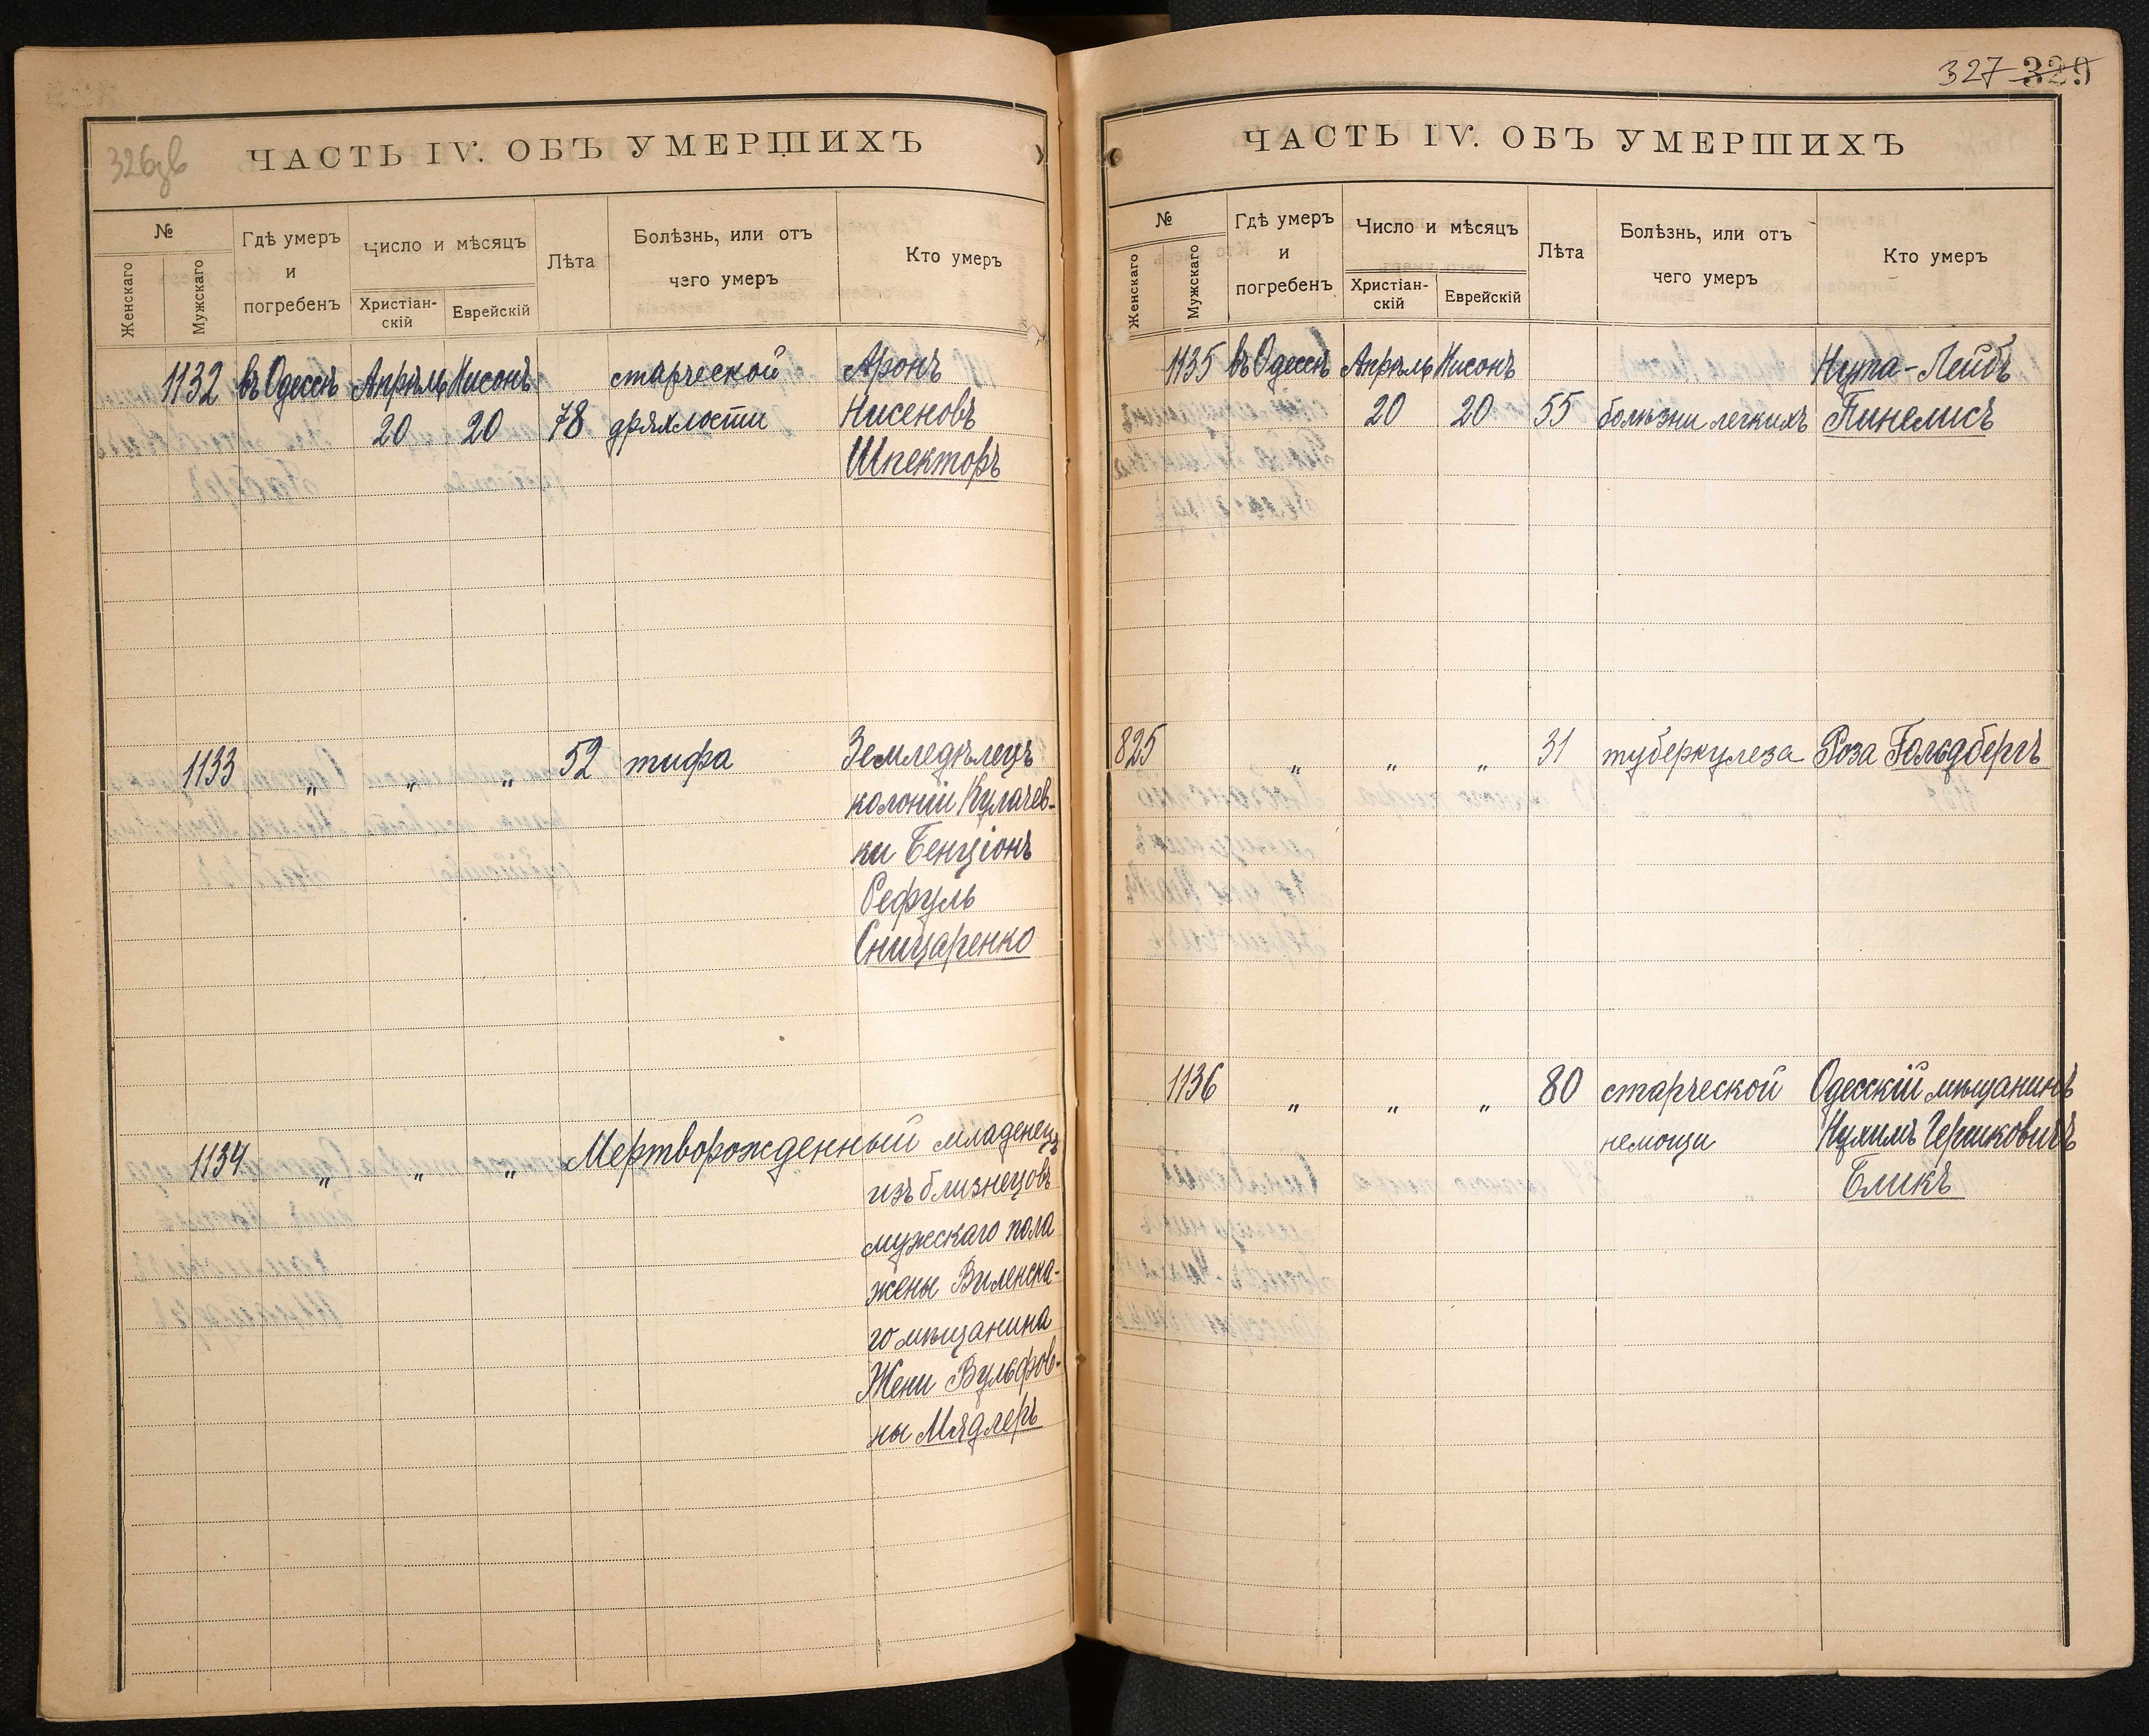 326зв
ЧАСТЬ IV. ОБЪ УМЕРШИХЪ
№
Женскаго
Мужскаго
Гдѣ умеръ
и
погребенъ
Число и мѣсяцъ
Христіан-
скій
Еврейскій
Лѣта
Болѣзнь, или отъ
чего умеръ
Кто умеръ
1132 въ Одессѣ Апрѣль Нисонъ старческой Аронъ
20 20 78 дряхлости Нисеновъ
Шпекторъ
1133 „ „ „ 52 тифа Земледѣлецъ
колоніи Кулачев-
ки Бенціонъ
Рефуль
Сницаренко
1134 „ „ „ Мертворожденный младенецъ
изъ близнецовъ
мужескаго пола
жены Виленска-
го мѣщанина
Жени Вульфов-
ны Мядлеръ
327 329
ЧАСТЬ IV. ОБЪ УМЕРШИХЪ
№
Женскаго
Мужскаго
Гдѣ умеръ
и
погребенъ
Число и мѣсяцъ
Христіан-
скій
Еврейскій
Лѣта
Болѣзнь, или отъ
чего умеръ
Кто умеръ
1135 въ Одессѣ Апрѣль Нисонъ Нута-Лейбъ
20 20 55 болѣзни легкихъ Пинелисъ
825 „ „ „ 31 туберкулеза Роза Гольдбергъ
1136 „ „ „ 80 старческой Одесскій мѣщанинъ
немощи Нухимъ Гершковичъ
Бликъ